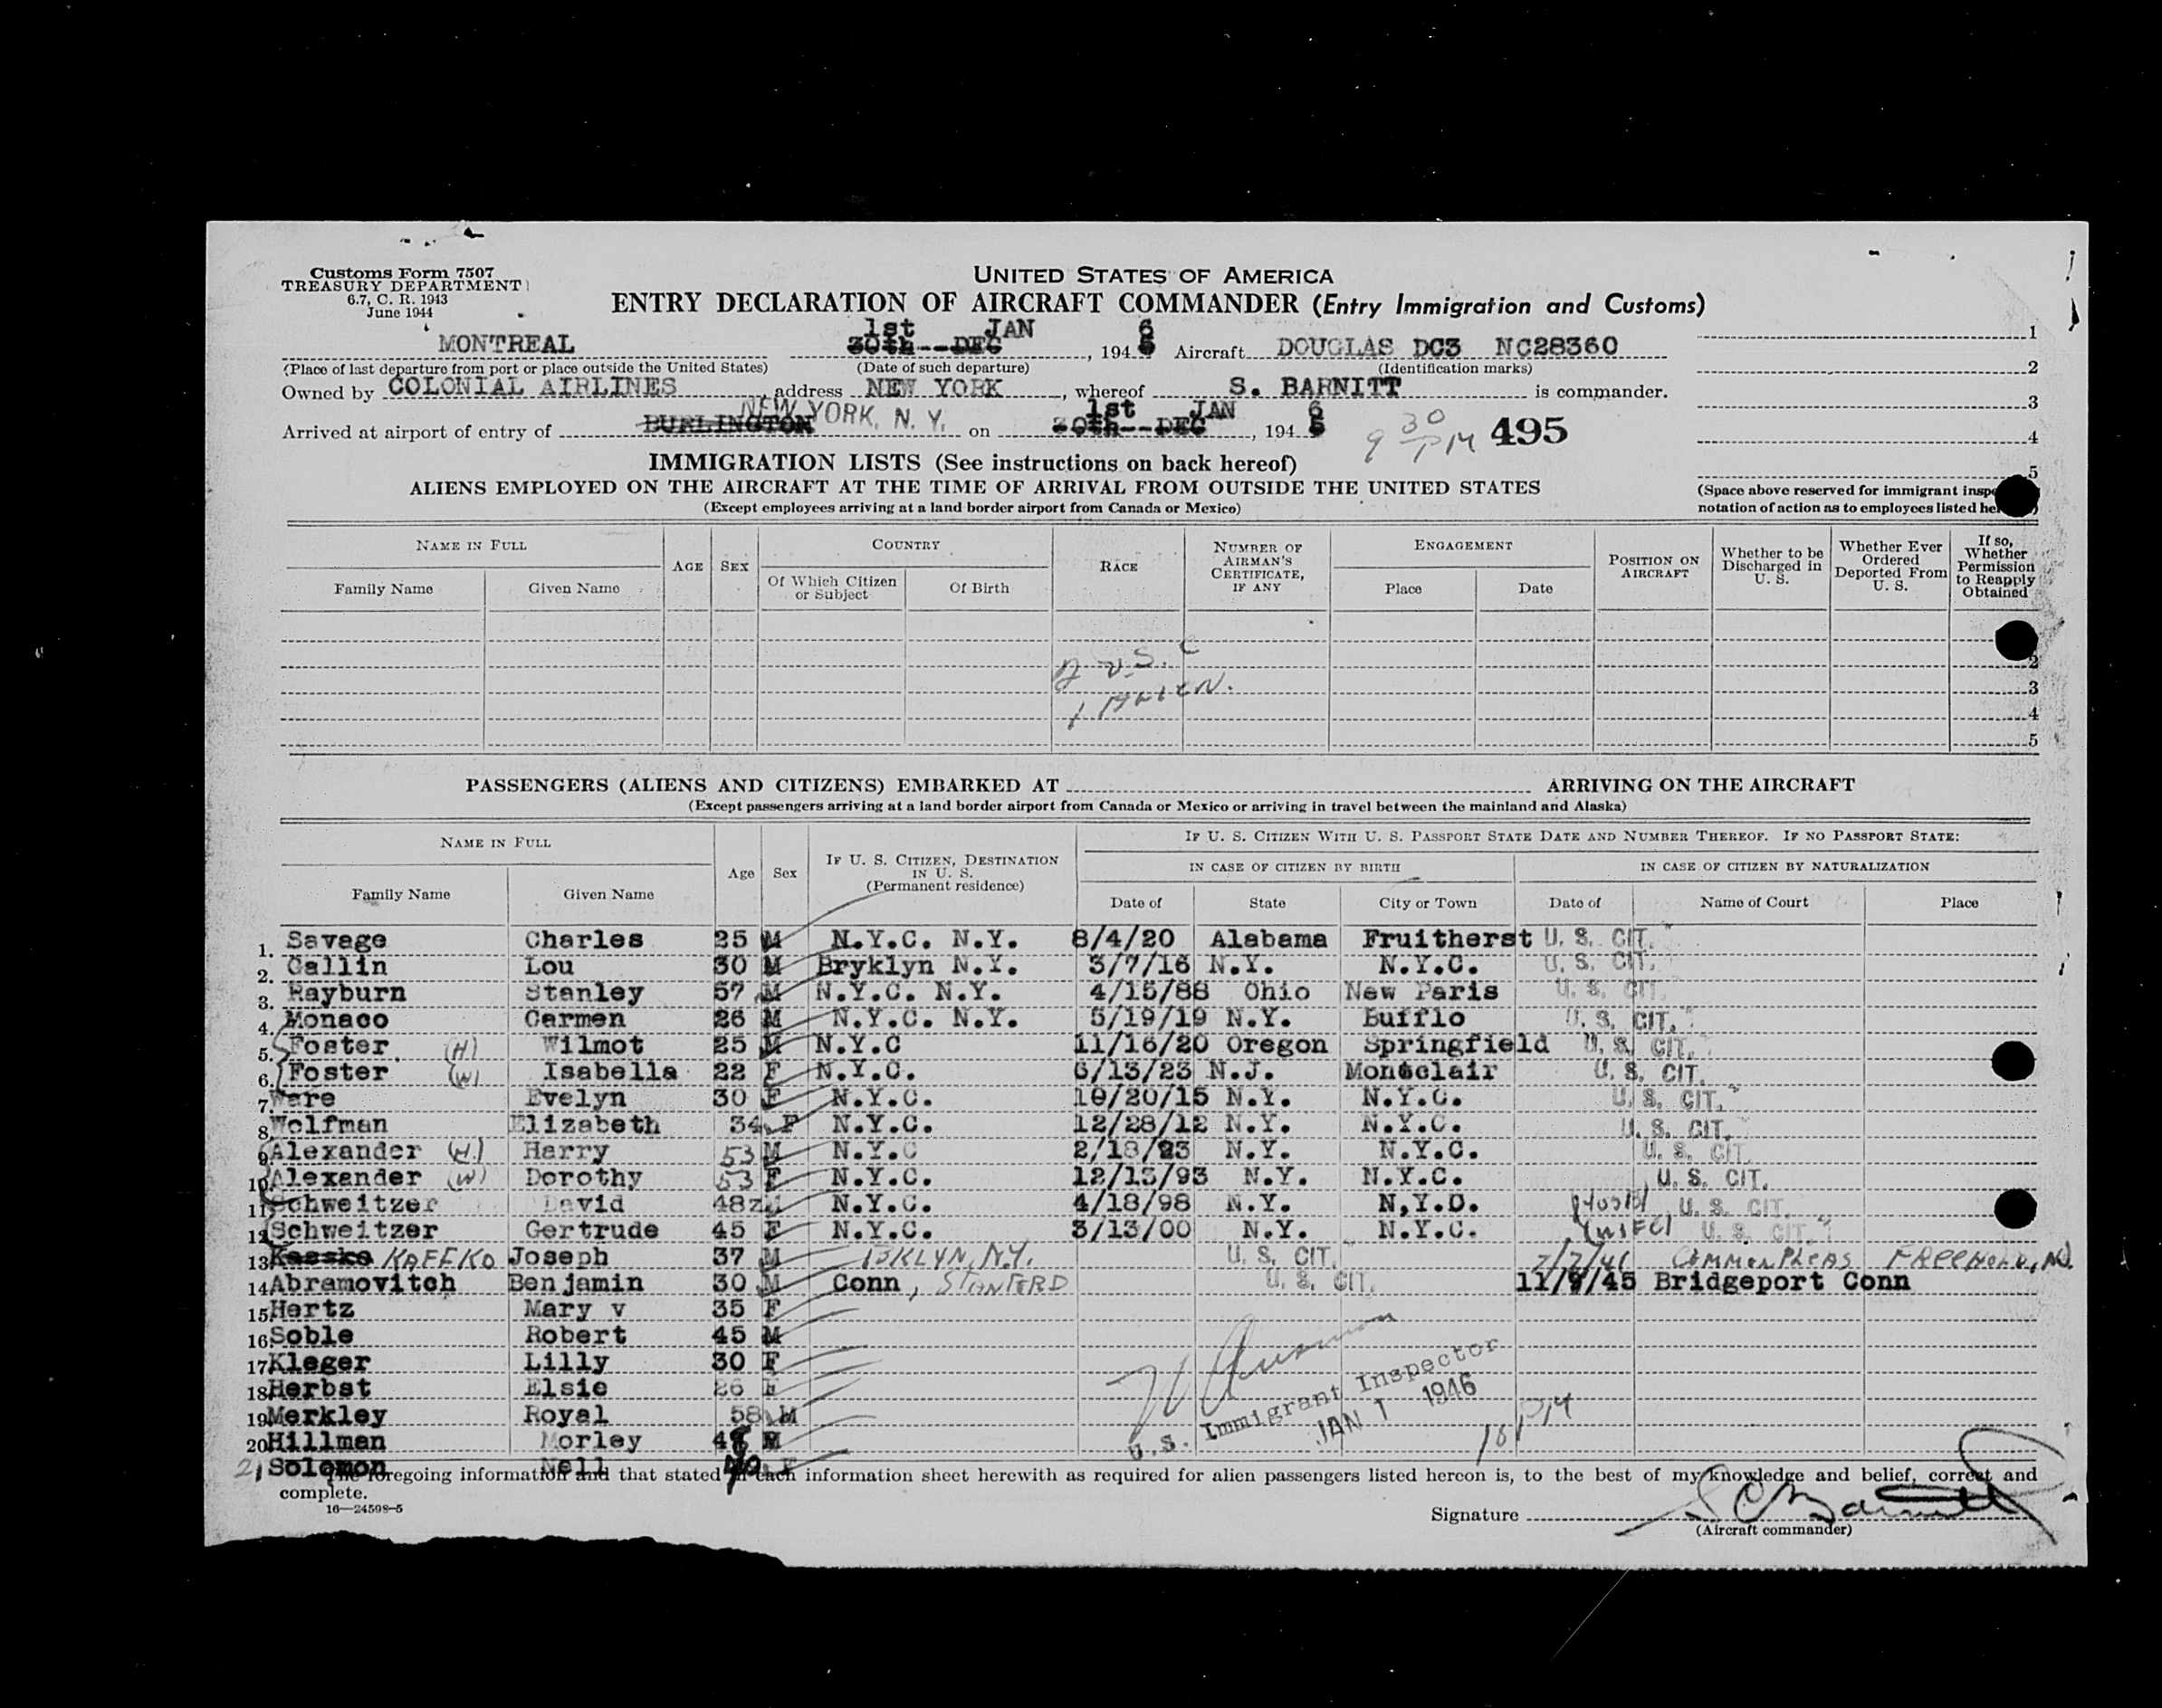 Customs Form 7507
TREASURY DEPARTMENT
6.7, C. R. 1943
June 1944
UNITED STATES OF AMERICA
ENTRY DECLARATION OF AIRCRAFT COMMANDER (Entry Immigration and Customs)
MONTREAL 1st JAN 30th--DEC, 194 6 Aircraft DOUGLAS DC3 NC28360
(Place of last departure from port or place outside the United States) (Date of such departure) (Identification marks)
Owned by COLONIAL AIRLINES, address NEW YORK, whereof S. BARNITT is commander.
Arrived at airport of entry of BURLINGTON NEW YORK, N. Y. on 1st JAN 30th--DEC, 194 6 9 30 PM 495
1
2
3
4
5
(Space above reserved for immigrant
notation of action as to employees listed
IMMIGRATION LISTS (See instructions on back hereof)
ALIENS EMPLOYED ON THE AIRCRAFT AT THE TIME OF ARRIVAL FROM OUTSIDE THE UNITED STATES
(Except employees arriving at a land border airport from Canada or Mexico)
NAME IN FULL
Family Name Given Name
AGE SEX
COUNTRY
Of Which Citizen or Subject Of Birth
RACE
NUMBER OF AIRMAN'S CERTIFICATE, IF ANY
ENGAGEMENT
Place Date
POSITION ON AIRCRAFT
Whether to be Discharged in U. S.
Whether Ever Ordered Deported From U. S.
If so, Whether Permission to Reapply Obtained
U.S. C
1 ALIEN.
2
3
4
5
PASSENGERS (ALIENS AND CITIZENS) EMBARKED AT ARRIVING ON THE AIRCRAFT
(Except passengers arriving at a land border airport from Canada or Mexico or arriving in travel between the mainland and Alaska)
NAME IN FULL
Family Name Given Name
Age Sex
IF U. S. CITIZEN, DESTINATION IN U. S. (Permanent residence)
IF U. S. CITIZEN WITH U. S. PASSPORT STATE DATE AND NUMBER THEREOF. IF NO PASSPORT STATE:
IN CASE OF CITIZEN BY BIRTH IN CASE OF CITIZEN BY NATURALIZATION
Date of State City or Town Date of Name of Court Place
1. Savage Charles 25 M N.Y.C. N.Y. 8/4/20 Alabama Fruitherst U. S. CIT.
2. Gallin Lou 30 M Bryklyn N.Y. 3/7/16 N.Y. N.Y.C. U. S. CIT.
3. Rayburn Stanley 57 M N.Y.C. N.Y. 4/15/88 Ohio New Paris U. S. CIT.
4. Monaco Carmen 26 M N.Y.C. N.Y. 5/19/19 N.Y. Bufflo U. S. CIT.
5. Foster (H) Wilmot 25 M N.Y.C 11/16/20 Oregon Springfield U. S. CIT.
6. Foster (W) Isabella 22 F N.Y.C. 6/13/23 N.J. Montclair U. S. CIT.
7. Ware Evelyn 30 F N.Y.C. 10/20/15 N.Y. N.Y.C. U. S. CIT.
8. Wolfman Elizabeth 34 F N.Y.C. 12/28/12 N.Y. N.Y.C. U. S. CIT.
9. Alexander (H) Harry 53 M N.Y.C 2/18/93 N.Y. N.Y.C. U. S. CIT
10. Alexander (W) Dorothy 53 F N.Y.C. 12/13/93 N.Y. N.Y.C. U. S. CIT.
11. Schweitzer David 48 N.Y.C. 4/18/98 N.Y. N,Y.C. U. S. CIT.
12. Schweitzer Gertrude 45 F N.Y.C. 3/13/00 N.Y. N.Y.C. (WIFE) U. S. CIT.
13. KAFEKO Joseph 37 M BKLYN, N.Y. U. S. CIT. COMMON PLEAS FREEHOLD, NJ.
14 Abramovitch Benjamin 30 M Conn, STANFERD U. S. CIT. 11/9/45 Bridgeport Conn
15. Hertz Mary v 35 F
16 Soble Robert 45 M
17. Kleger Lilly 30 F
18. Herbst Elsie 26 F
19. Merkley Royal 58 M
20. Hillman Morley 48 M
21 Solomon Nell 40 F
U.S. Immigrant Inspector
JAN 1 1946
The foregoing information and that stated in each information sheet herewith as required for alien passengers listed hereon is, to the best of my knowledge and belief, correct and
complete.
16—24598-5
Signature S C Barnitt
(Aircraft commander)